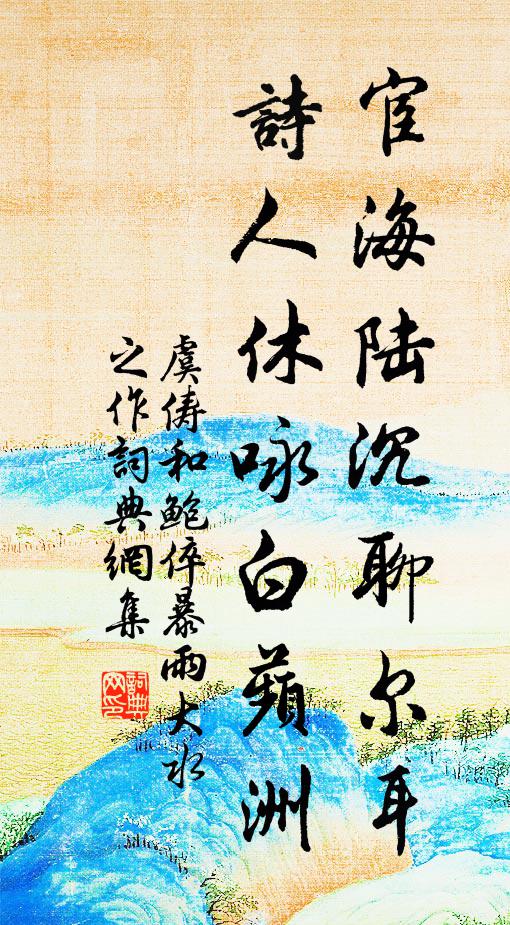 宦海陆沉聊尔耳
詩人休咏白蘋洲
虞俦和鲍倅暴雨大水
之作詞典網集
詞典
网印